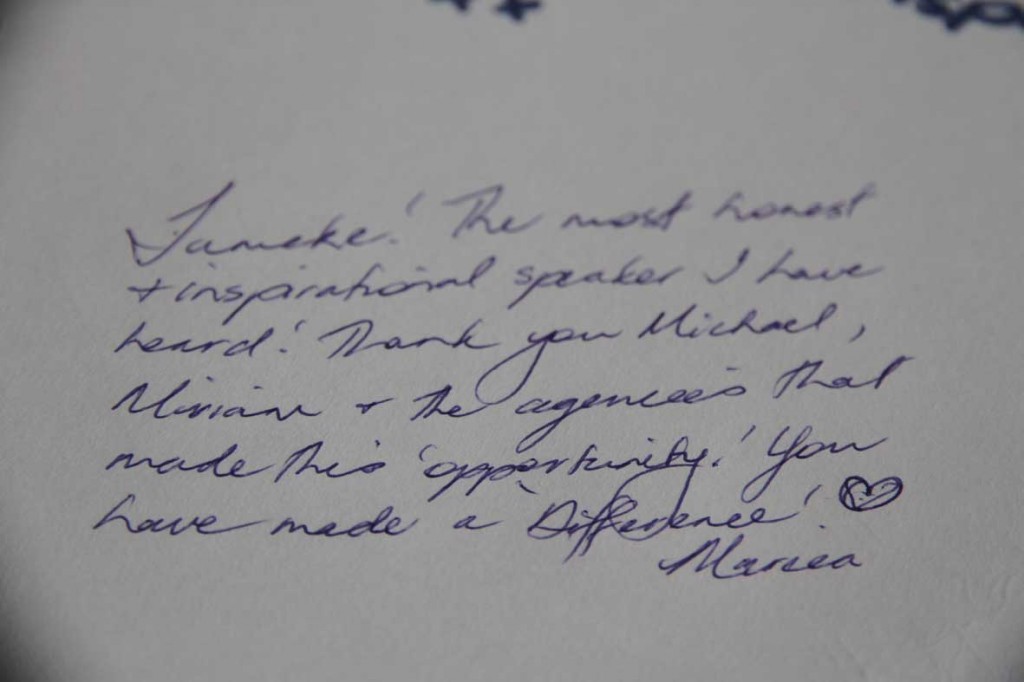 Jameke! The most honest
+ inspirational speaker I have
heard! Thank you Michael,
Miriam + the agencies that
made this 'opportunity! You
have made a 'Difference'! ♡
Marcea